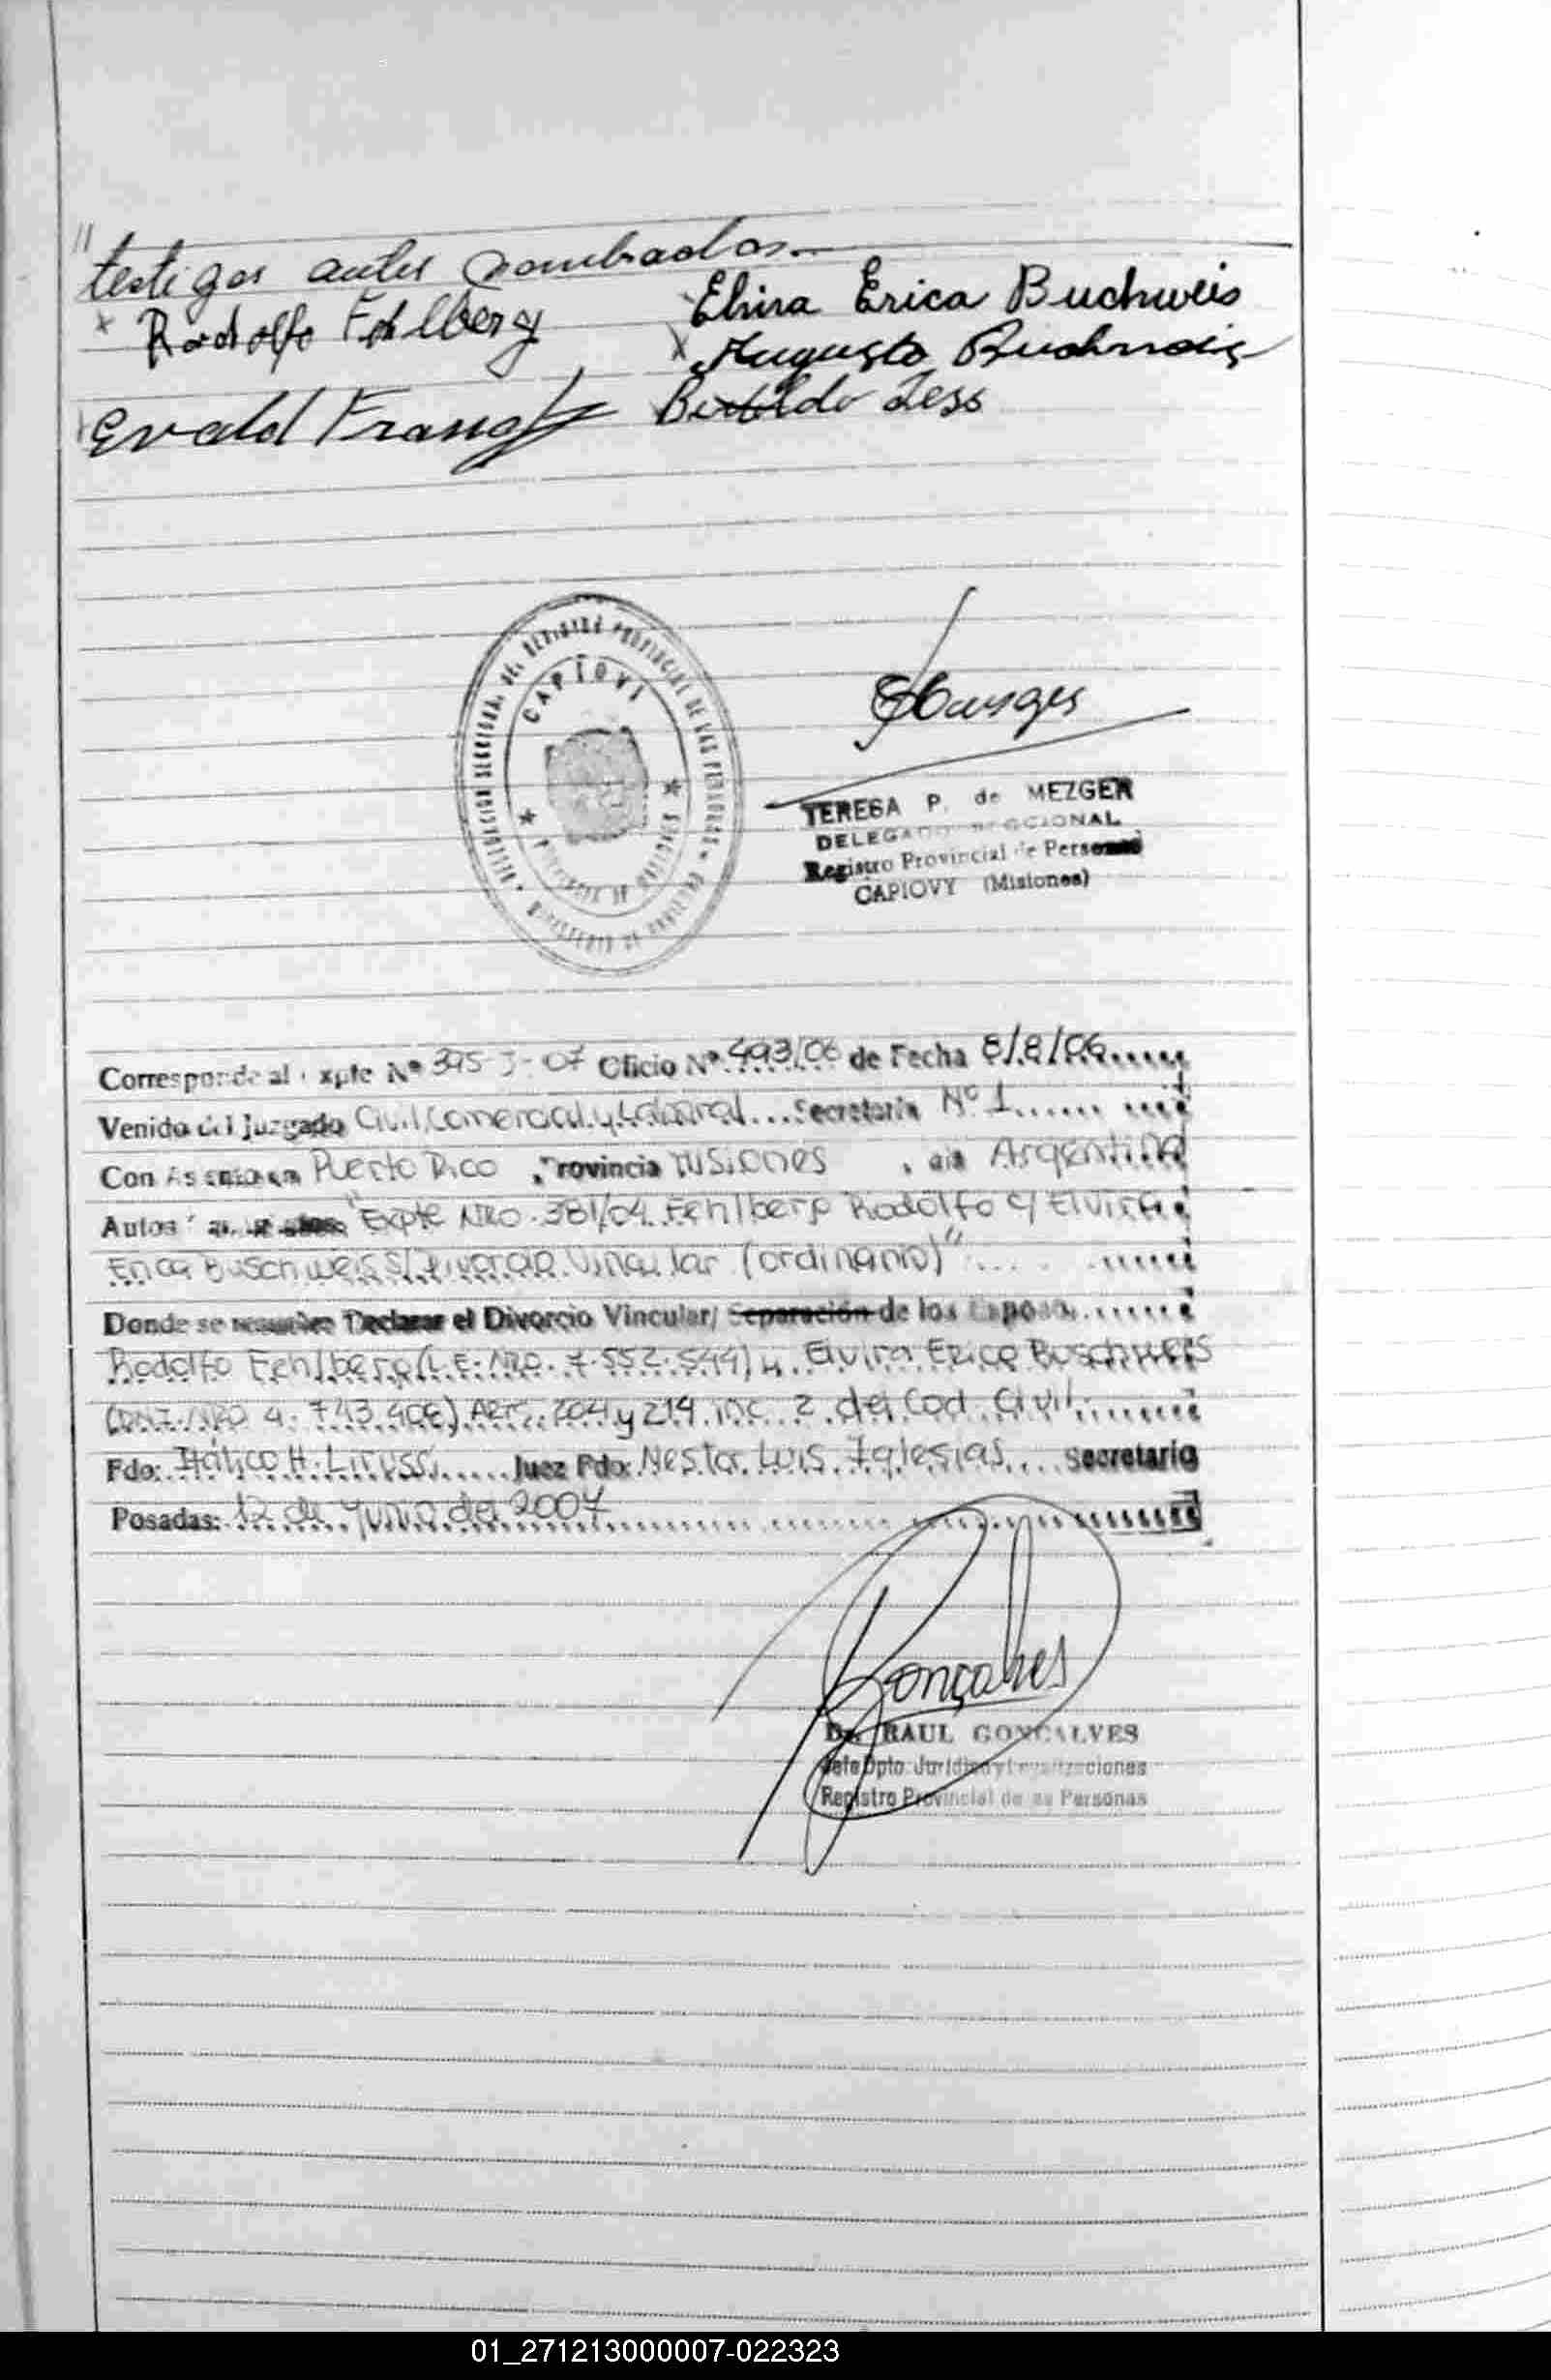 "testigos antes nombrados.—
x Rodolfo Fehlberg
Elvira Erica Buchweis
x Augusto Buchweis
Evald Franz
Bertoldo Less
DELEGACION SECCIONAL DEL REGISTRO PROVINCIAL DE LAS PERSONAS
CAPIOVI
PROVINCIA DE MISIONES
MINISTERIO DE GOBIERNO
TERESA P. de MEZGER
DELEGADO SECCIONAL
Registro Provincial de Personas
CAPIOVY (Misiones)
Corresponde al Expte Nº 395-J-07 Oficio Nº 493/06 de Fecha 8/8/06
Venido del juzgado Civil, Comercial y Laboral Secretaria Nº 1
Con Asiento en Puerto Rico, Provincia Misiones, Argentina
Autos "Expte NRO. 381/04 Fehlberg Rodolfo c/ Elvira
Erica Buschweis S/ Divorcio Vincular (ordinario)"
Donde se resuelve Declarar el Divorcio Vincular/ Separación de los Esposos
Rodolfo Fehlberg (L.E. NRO. 7.552.544) y Elvira Erica Buschweis
(DNI. NRO 4.743.408) Art. 204 y 214 inc. 2 del Cod. Civil
Fdo: Itálico H. Lirussi Juez Fdo: Nestor Luis Iglesias Secretario
Posadas: 12 de Junio del 2007
Gonçalves
Dr. RAUL GONCALVES
Jefe Dpto. Juridico y Legalizaciones
Registro Provincial de las Personas
01_271213000007-022323